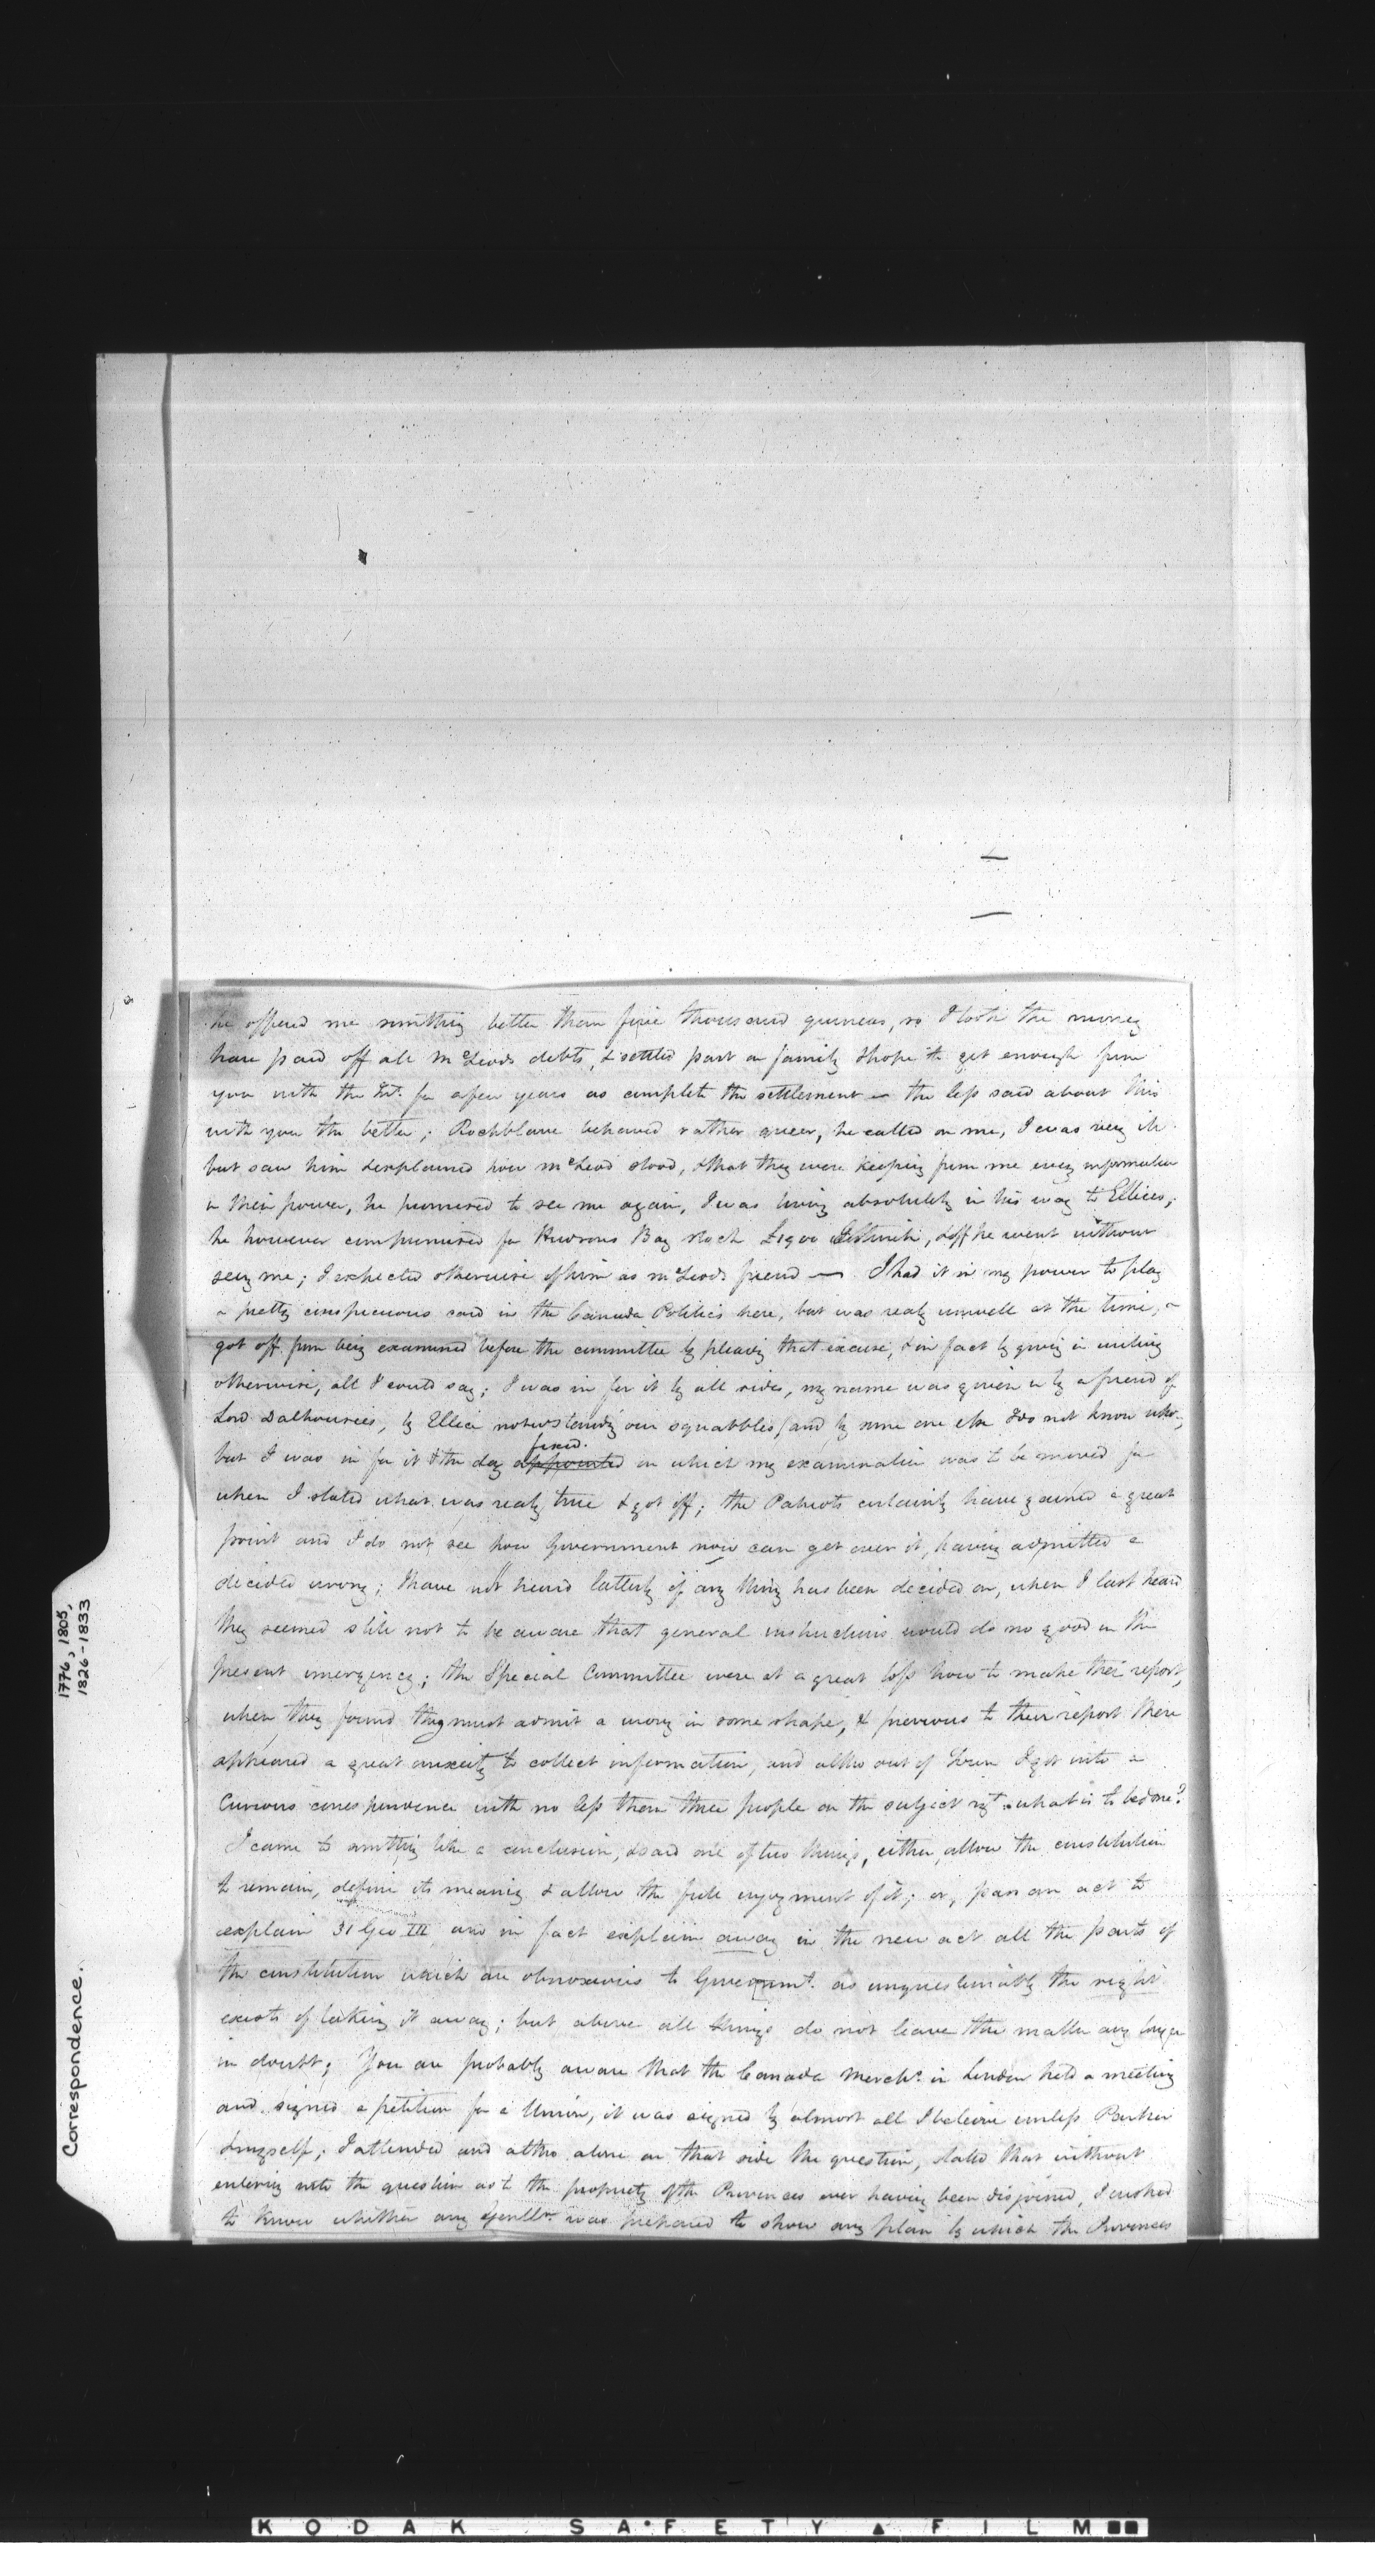 he offered me something better than five thousand guineas, so I took the money
have paid off all McLeods debts, & settled part on family & hope to get enough from
you with the Int. for a few years as complete the settlement — the less said about this
with you the better; Rochblave behaved rather queer, he called on me, I was very ill
but saw him & explained how McLeod stood, & that they were keeping from me every information
in their power, he promised to see me again, I was living absolutely in his way to Ellices,
he however compromised for Hudsons Bay stock £1900 & off he went without
seeing me; I expected otherwise of him as McLeods friend — I had it in my power to play
a pretty conspicuous in the Canada Politics here, but was realy unwell at the time, &
got off from being examined before the committee by pleading that excuse, & in fact by giving in writing
otherwise, all I could say; I was in for it by all sides, my name was given in by a friend of
Lord Dalhousies, by Ellice our squabbles / and by some one else I do not know who,
fixed.
but I was in for it & the day appointed on which my examination was to be moved for
when I stated what was realy true & got off; the Patriots certainly have gained a great
point and I do not see how Government now can get over it, having admitted a
decided wrong; I have not heard latterly if any thing has been decided on, when I last heard
they seemed still not to be aware that general instructions would do no good in the
present emergency; the Special Committee were at a great loss how to make their report,
when they found they must admit a wrong in some shape, & previous to their report there
appeared a great anxiety to collect information, and altho out of Town I got into a
Curious correspondence with no less than three people on the subject what is to be done?
I came to something like a conclusion, & said one of two things, either, allow the constitution
to remain, define its meaning & allow the full enjoyment of it; or, pass an act to
explain 31 Geo III and in fact explain away in the new act all the parts of
the constitution which are obnoxious to Governmt. as unquestionably the right
exists of taking it away; but above all things do not leave the matter any longer
in doubt; You are probably aware that the Canada Merchts. in London held a meeting
and signed a petition for a Union, it was signed by almost all I beleive unless Parker
& myself; I attended and altho alone on that side the question, stated that without
entering into the question as to the propriety of the Provinces ever having been disjoined, I wished
to know whether any Gentln. was prepared to show any plan by which the Provinces
Correspondence.
1776, 1805,
1826-1833
KODAK SAFETY FILM